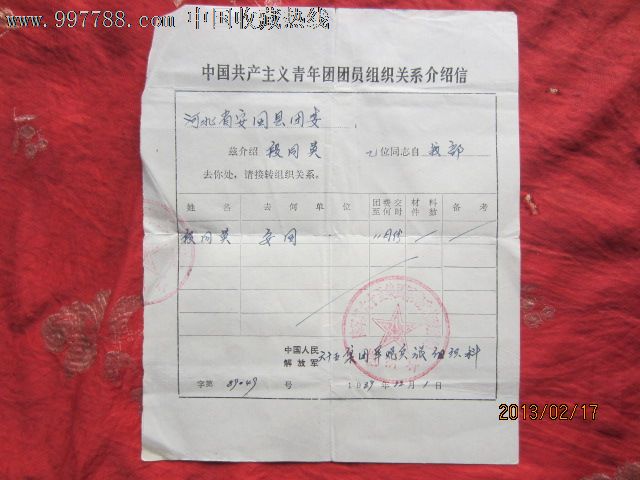 中国收藏热线
www.997788.com
中国共产主义青年团团员组织关系介绍信
河北省安国县团委
兹介绍 段同英 乙位同志自 我部
去你处，请接转组织关系。
姓名 去何单位 团费交至何时 材料件数 备考
段同英 安国 11月份
中国人民解放军 集团军炮兵旅组织科
字第 89049 号 1989年12月1日
2013/02/17